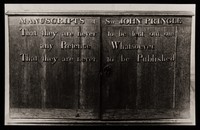 MANUSCRIPTS of Sir JOHN PRINGLE
That they are never to be lent out on
any Pretence Whatsoever
That they are never to be Published